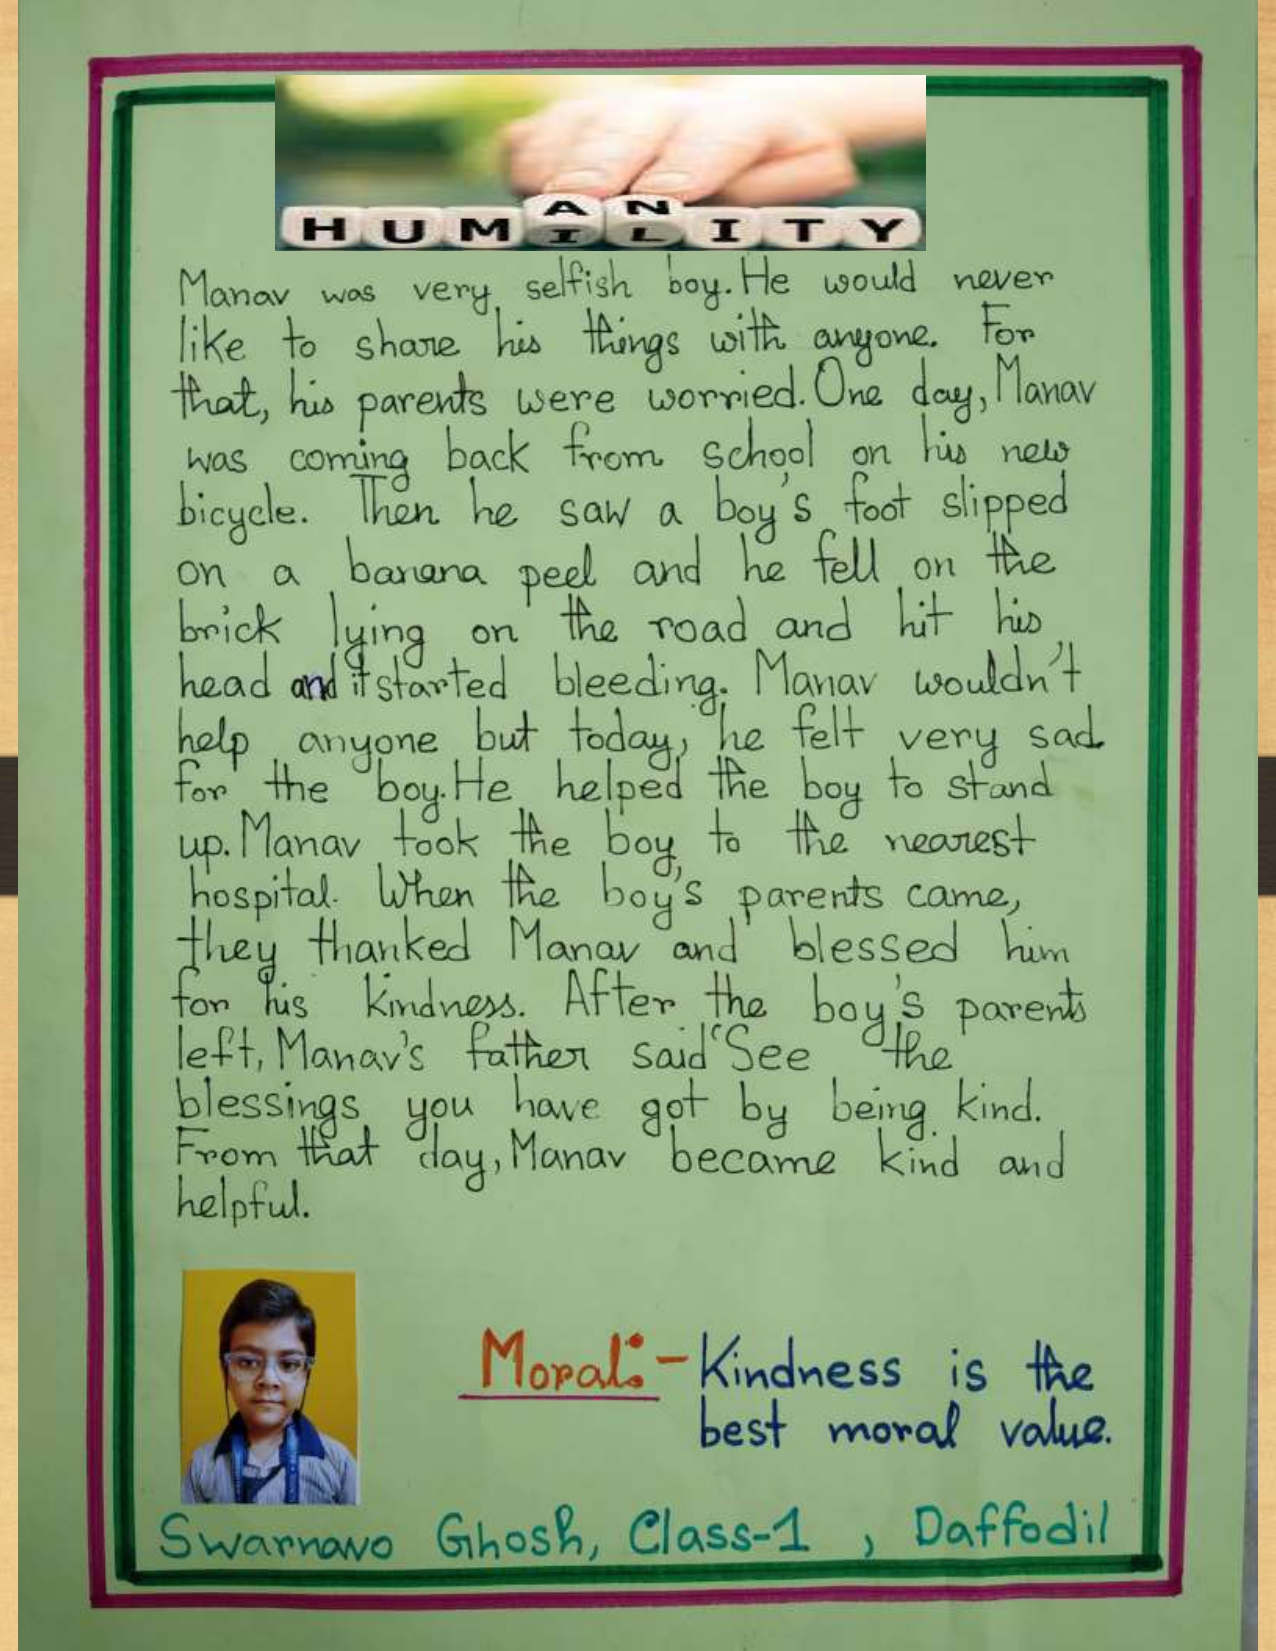 HUMANITY
IL
Manav was very selfish boy. He would never
like to share his things with anyone. For
that, his parents were worried. One day, Manav
was coming back from school on his new
bicycle. Then he saw a boy's foot slipped
on a banana peel and he fell on the
brick lying on the road and hit his
head and it started bleeding. Manav wouldn't
help anyone but today, he felt very sad
for the boy. He helped the boy to stand
up. Manav took the boy to the nearest
hospital. When the boy's parents came,
they thanked Manav and blessed him
for his kindness. After the boy's parents
left, Manav's father said "See the
blessings you have got by being kind.
From that day, Manav became kind and
helpful.
Moral:- Kindness is the
best moral value.
Swarnavo Ghosh, Class-1 , Daffodil